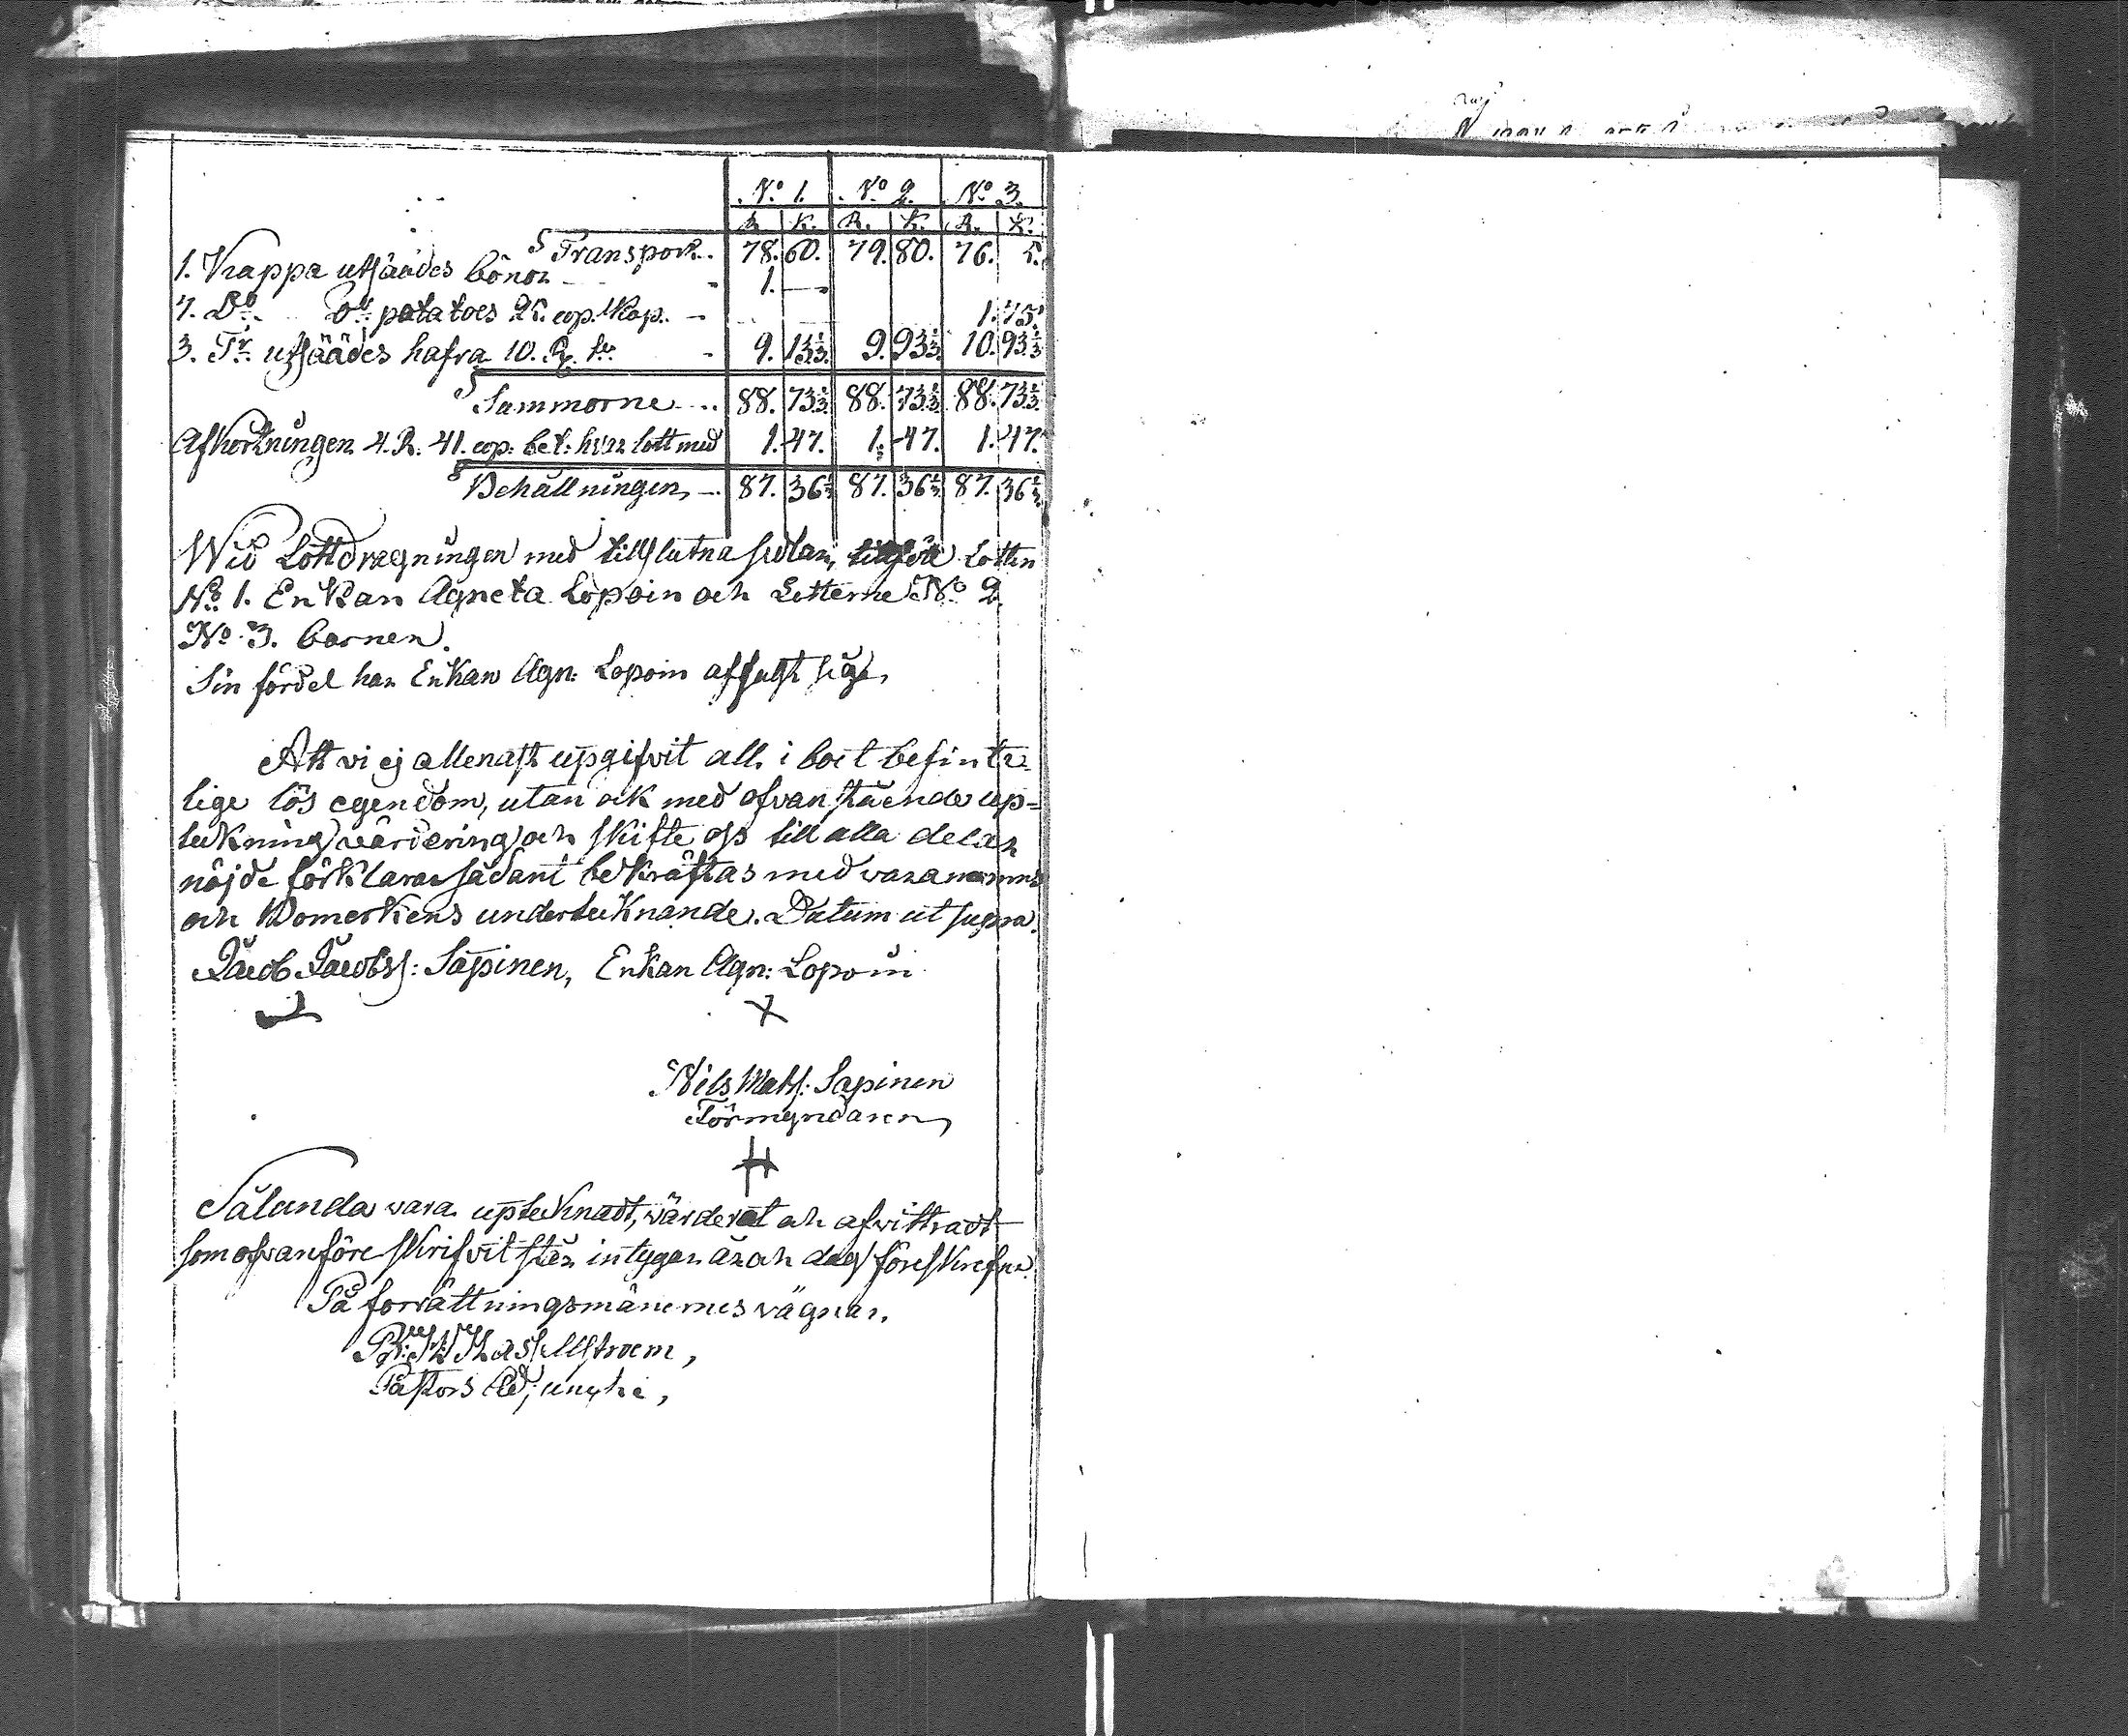 No 1. No 2. No 3.
R. K. R. K. R. K.
Transport.. 78. 60. 79. 80. 76. 5.
1. Kappa utsäädes bönor - - 1. —
7. Do Do potatoes 25. cop. Kap. - 1. 75.
3. Tr utsäädes hafra 10. R. tr - 9. 13 1/3. 9. 93 1/3. 10. 93 1/3
Summorne .. 88. 73 1/3. 88. 73 1/3. 88. 73 1/3.
Afkortningen 4. R. 41. cop. bet: hvar lott med 1. 47. 1. 47. 1. 47.
Behållningen - 87. 36 1/3 87. 36 1/3 87. 36 1/3
Wid Lottdragningen med tillslutna sedlar, tillföll Lotten
No 1. Enkan Agneta Lopoin och Lotterne No 2.
No 3. barnen.
Sin fördel har Enkan Agn: Lopoin afsagt sig.
Att vi ej allenast upgifvit all i boet befinte-
lige lös egendom, utan ock med ofvanstående up-
teckning värdering och skifte oss till alla delar
nöjde förklara sådant bekräftas med vara namns
och Bomerkens underteknande. Datum ut supra.
Jacob Jacobss: Sapinen, Enkan Agn: Lopoin
Nils Matss: Sapinen
Förmyndaren
Sålunda vara upteknadt, värderat och afvittradt
som ofvanföre skrifvit står intygar år och dag föreskrefne.
På forrättningsmännernes vägnar.
Pastors Adjunctus,